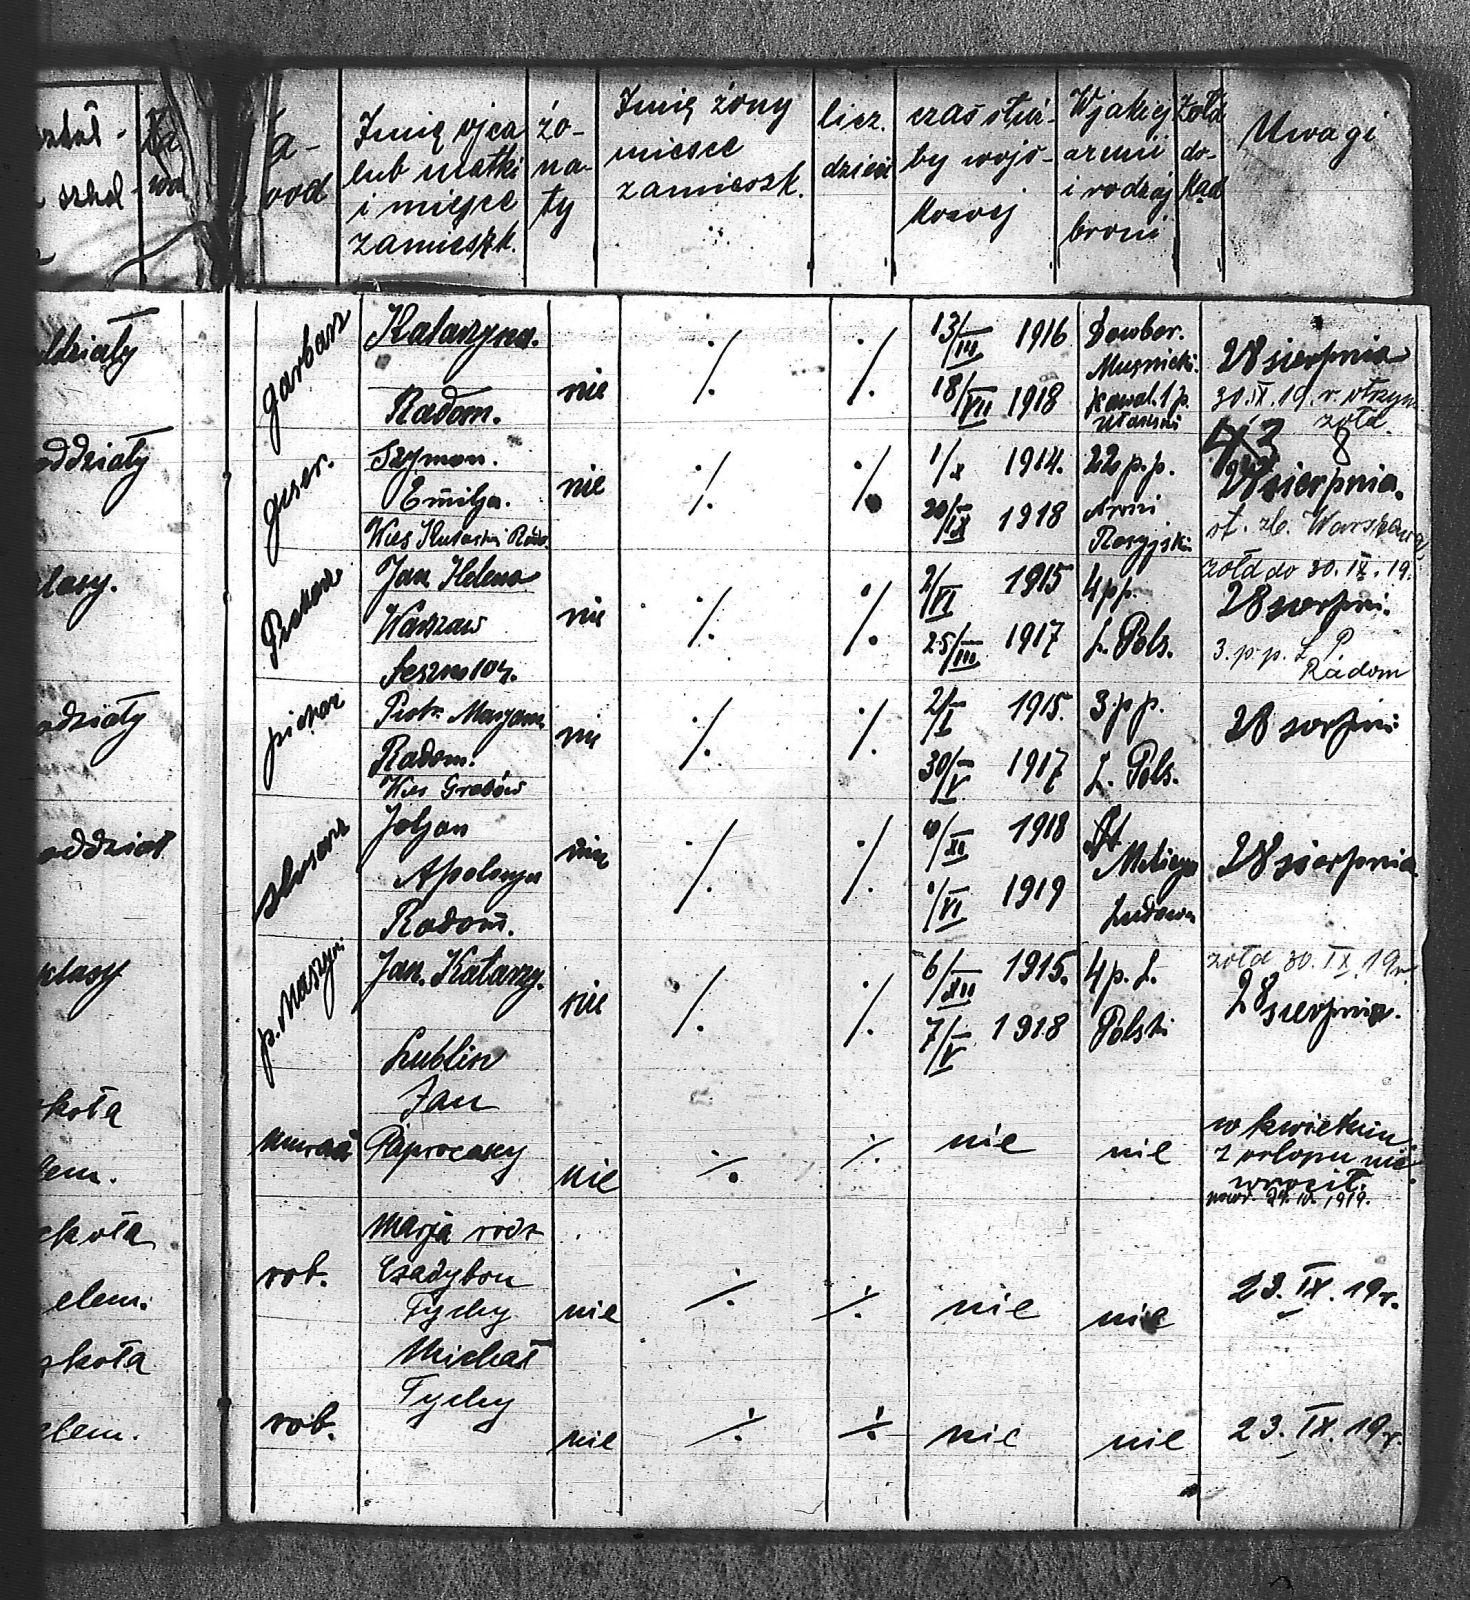 szkoł
Za
wód
Imię ojca
lub matki
i miejsce
zamieszk.
żo-
na-
ty
Imię żony
miesce
zamieszk.
licz.
dzieci
czas służ-
by wojs-
kowej
W jakiej
armii
i rodzaj
broni
żołd
do-
kąd
Uwagi
oddziały
garbarz
Katarzyna.
Radom.
nie
./.
./.
13/III 1916
18/VII 1918
Dowbor.
Muśnicki.
kawal. 1 p.
28 sierpnia
30.IX.19.r. otrzym.
żołd.
43 8
oddziały
giser.
Szymon.
Emilja.
Wieś
nie
./.
./.
1/X 1914.
20/IX 1918
22 p.p.
Armi
Rosyjski
28 sierpnia.
st. zb. Warszawa
klasy.
Jan Helena
Warszaw
Leszno 104.
nie
./.
./.
2/VI 1915
25/III 1917
4 p.p.
L. Pols.
żołd do 30.IX.19.
28 sierpni.
3. p. p. L. P.
Radom
oddziały
piekarz
Piotr. Maryanna
Radom.
Wieś Grabów
nie
./.
./.
2/I 1915.
30/V 1917
3 p.p.
L. Pols.
28 sierpni
oddział
ślusarz
Juljan
Apolonya
Radom.
nie
./.
./.
XI 1918
VI 1919
Milicya
Ludowa
28 sierpnia
klasy
p. Maszyn.
Jan. Katarzy.
Lublin
nie
./.
./.
6/XII 1915.
7/V 1918
4 p. L.
Polski
żołd 30.IX.19r
28 sierpnia.
szkoła
elem.
Jan
Paproczny
nie
./.
./.
nie
nie
w kwietniu
z urlopu nie
wrócił.
29.IV.1919.
szkoła
elem.
rob.
Marja rodz.
Tychy
nie
./.
./.
nie
nie
23.IX.19r.
szkoła
elem.
rob.
Michał
Tychy
nie
./.
./.
nie
nie
23.IX.19r.